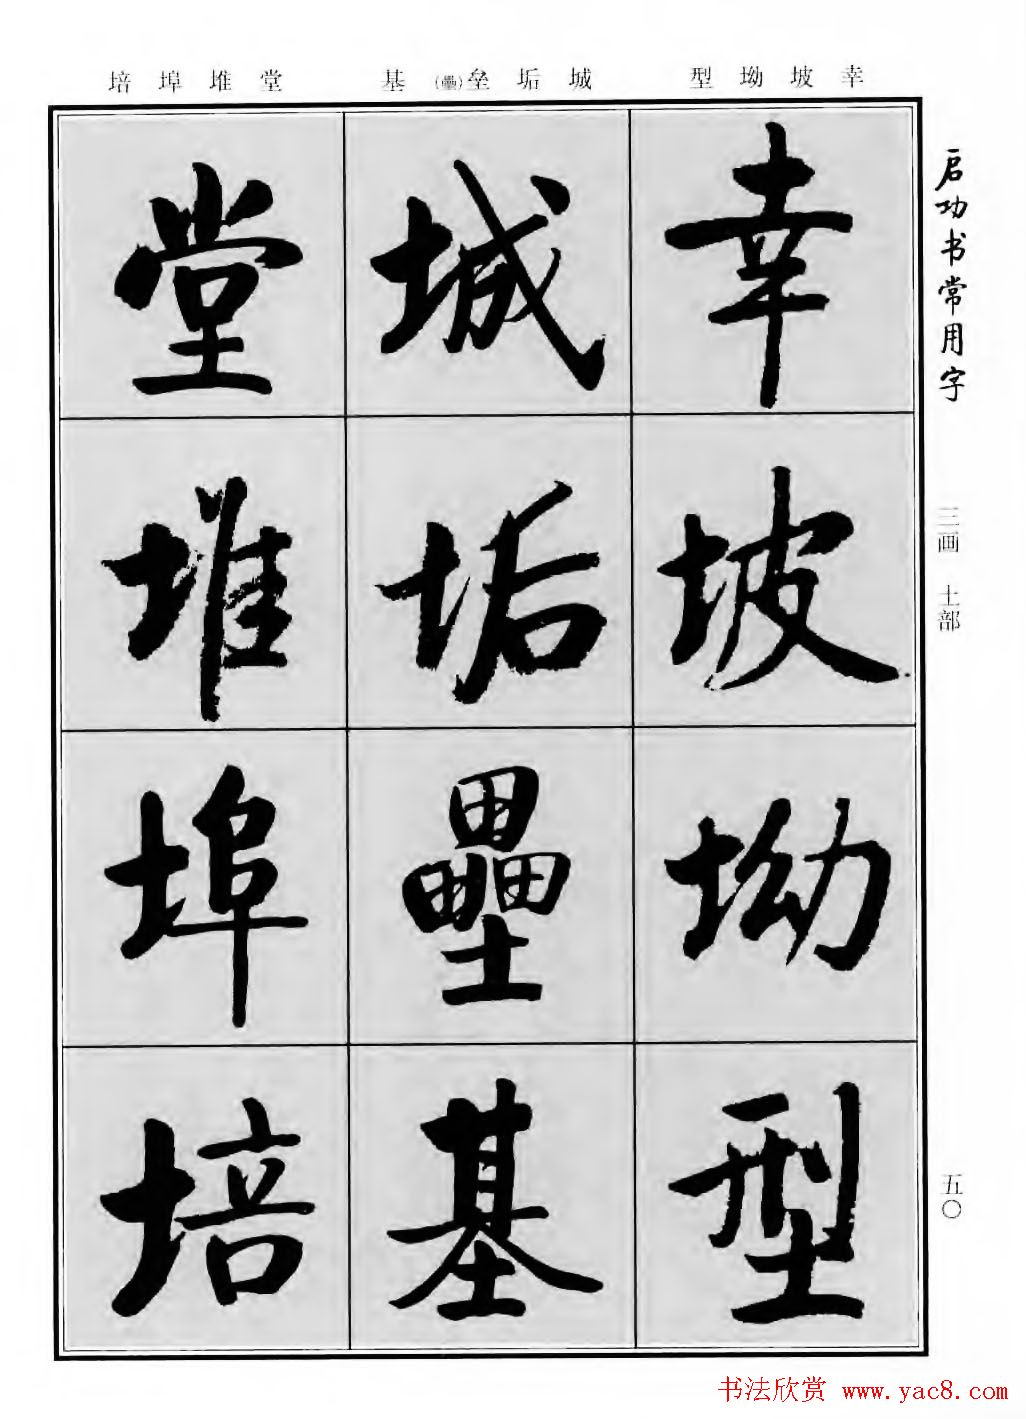 幸坡坳型
城垢垒(壘)基
堂堆埠培
启功书常用字
三画 土部
五〇
幸坡坳型
城垢壘基
堂堆埠培
书法欣赏 www.yac8.com